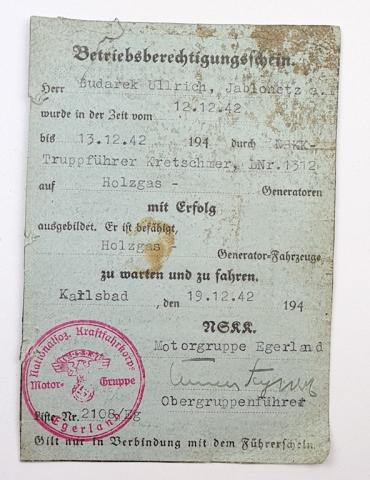 Betriebsberechtigungsschein.
Herr Budarek Ullrich, Jablonetz a.
wurde in der Zeit vom 12.12.42
bis 13.12.42 194 durch NSKK-
Truppführer Kretschmer, LNr.1312
auf Holzgas - Generatoren
mit Erfolg
ausgebildet. Er ist befähigt,
Holzgas Generator-Fahrzeuge
zu warten und zu fahren.
Karlsbad, den 19.12.42 194
NSKK.
Motorgruppe Egerland
Obergruppenführer
Nationalsoz. Kraftfahrkorps
Motor- Gruppe
Egerland
Liste-Nr. 2108/Eg
Gilt nur in Verbindung mit dem Führerschein.